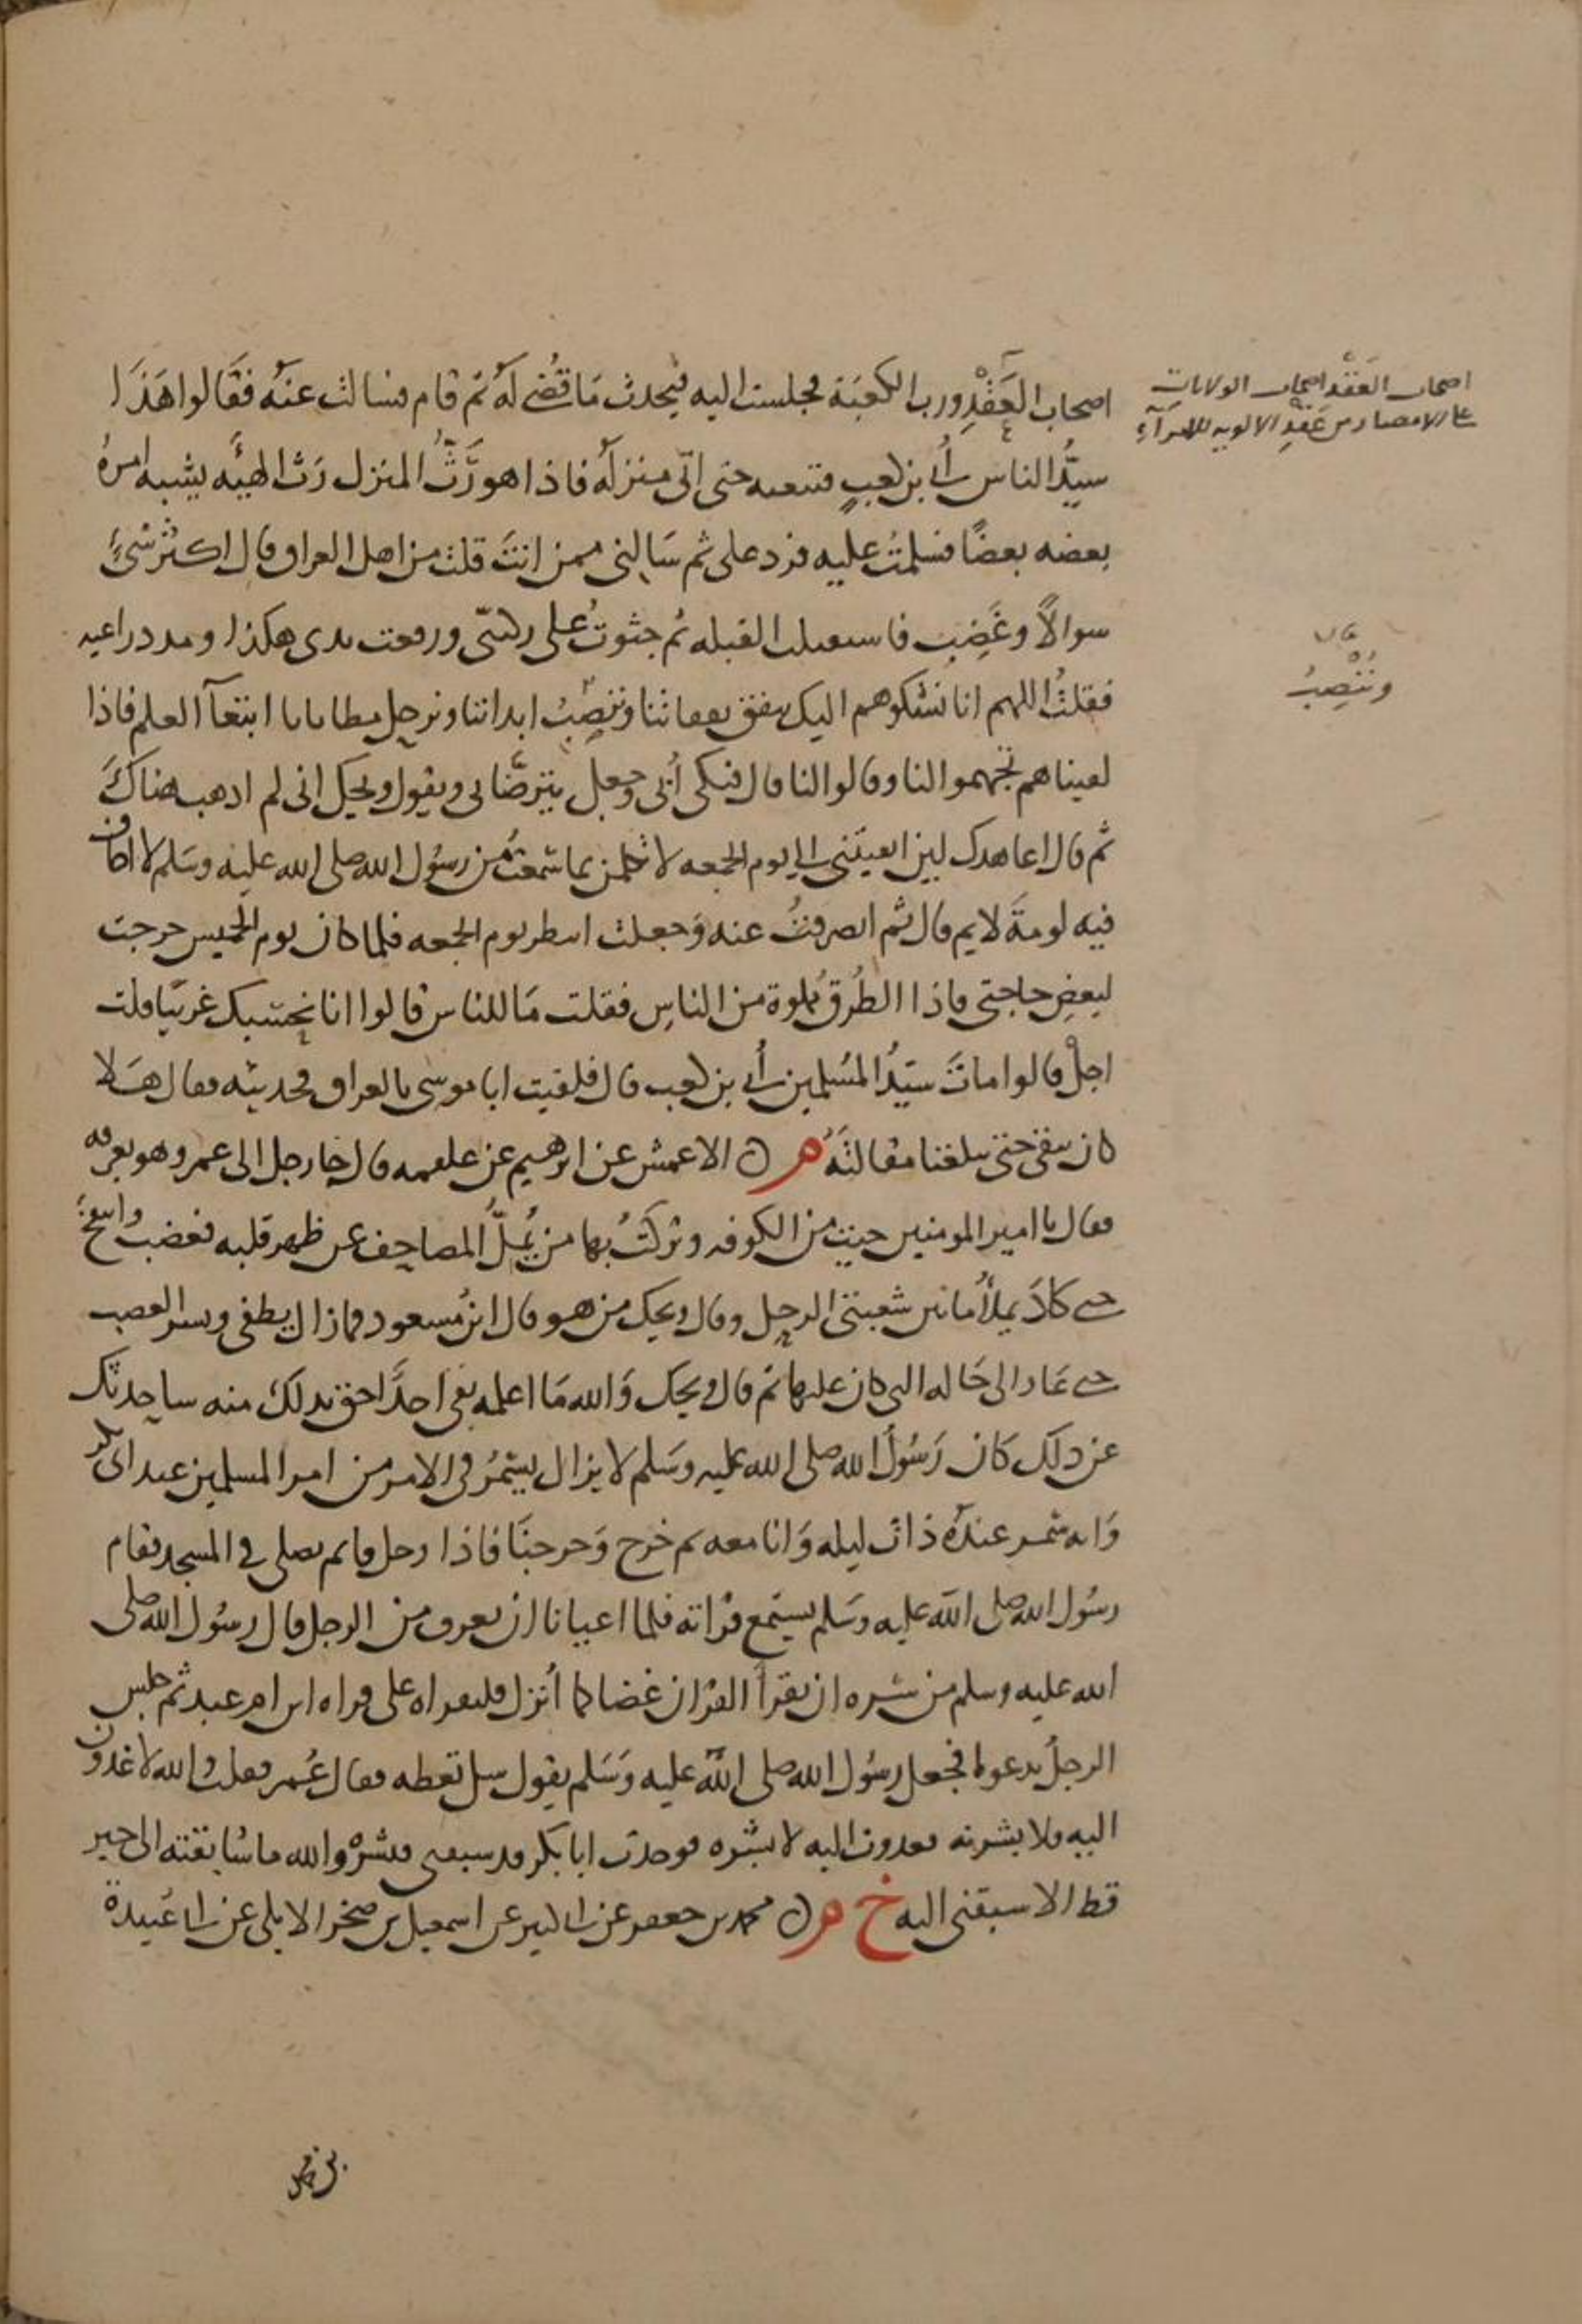 اصحاب العَقْدِ ورب الكعبَة فجلست اليه فيحدث مَا قُضي لَهُ ثم قام فسالت عنَهُ فقَالوا هَذَا
سيّدُ الناس أُبي بن كعبٍ فتبعته حتى اتى منزلَهُ فاذا هو رَثُّ المنزل رَث الهيئَه يشبه امرهُ
بعضه بعضًا فسلمتُ عليه فرد على ثم سَالنى ممن انتَ قلت من اهل العراق قال اكثر شَىءٍ
سوالاً وغَضِب فاستقبلت القبله ثم جثوتُ على ركبتى ورفعت يدى هكذا ومد ذراعيه
فقلتُ اللهم انا نشكوهم اليك ننفق نفقاتنا ونُنْصِبُ ابداننا ونرحل مطايانا ابتغآ العلم فاذا
لقيناهم تجهموا لنا وقالوا لنا قال فبكى أُبَى وجعل يترضَّانى ويقول ويحك انى لم اذهب هناكَ
ثم قال اعاهدك لين ابقيتنى الى يوم الجمعه لاتكلمن بما سَمعتُ من رسُول الله صلى الله عليه وسَلم لا اخاف
فيه لومةَ لايم قال ثم انصرفتُ عنه وَجعلت انتظر يوم الجمعه فلما كان يوم الخميس خرجت
لبعضِ حاجتى فاذا الطُرق مملوة من الناسِ فقلت مَا للناس قالوا انا نحسبك غريبًا قلت
اجلْ قالوا ماتَ سيّدُ المسُلمين أُبي بن كعب قال فلقيت ابا موسى بالعراق فحدثته فقال هَلا
كان بقى حتى تبلغنا مقالتُهُ هـ ن الاعمش عن ابرهيم عن علقمه قال جا رجل الى عمر وهو بعرفه
فقال يا امير المومنين جيت من الكوفه وتركتُ بها من يُمِلُّ المصاحف عن ظهر قلبه فغضب وانتفخ
حتى كادَ يملأُ ما بين شعبتى الرحل وقال ويحك من هو قال ابنُ مسعود فما زال يطفى ويسر الغضب
حتى عَاد الى حَاله التى كان عليها ثم قال ويحك وَالله مَا اعلمه بقى احدًا احق بذلك منه ساحدثك
عن ذلك كَان رَسُولُ الله صلى الله عليه وسَلم لا يزال يسَمرُ فى الامر من امر المسلمين عند ابى بكر
وَانه سَمر عندَهُ ذات ليله وَانا معه ثم خرج وَخرجنَا فاذا رجل قائم يصلى فى المسجد فقام
رسُول الله صلى الله عليه وسَلم يستمع قراته فلما اعيانا ان نعرف من الرجل قال رسُول الله صلى
الله عليه وسلم من سَره ان يقرأ القران غضا كما أُنزل فليقراه على قراه ابن ام عبد ثم جلس
الرجلُ يدعوا فجعل رسُول الله صلى الله عليه وَسَلم يقول سل تعطه فقال عُمر فقلت والله لاغدون
اليه فلابشرنه فغدوت اليه لابشره فوجدت ابا بكر قد سبقنى فبشرهُ والله ما سَابقته الى خير
قط الا سبقنى اليه خ هـ ن محمد بن جعفر عن ابى كثير عن اسمعيل بن صخر الايلى عن ابى عُبيدة
اصحاب العَقْد اصحاب الولايات
على الامصار من عَقْدِ الالويه للامرآءِ
ونُنْصِبُ